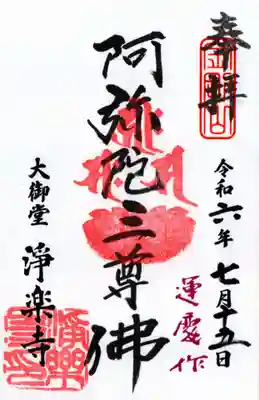 奉拝
令和六年 七月十五日
阿弥陀三尊佛
運慶作
大御堂
淨楽寺